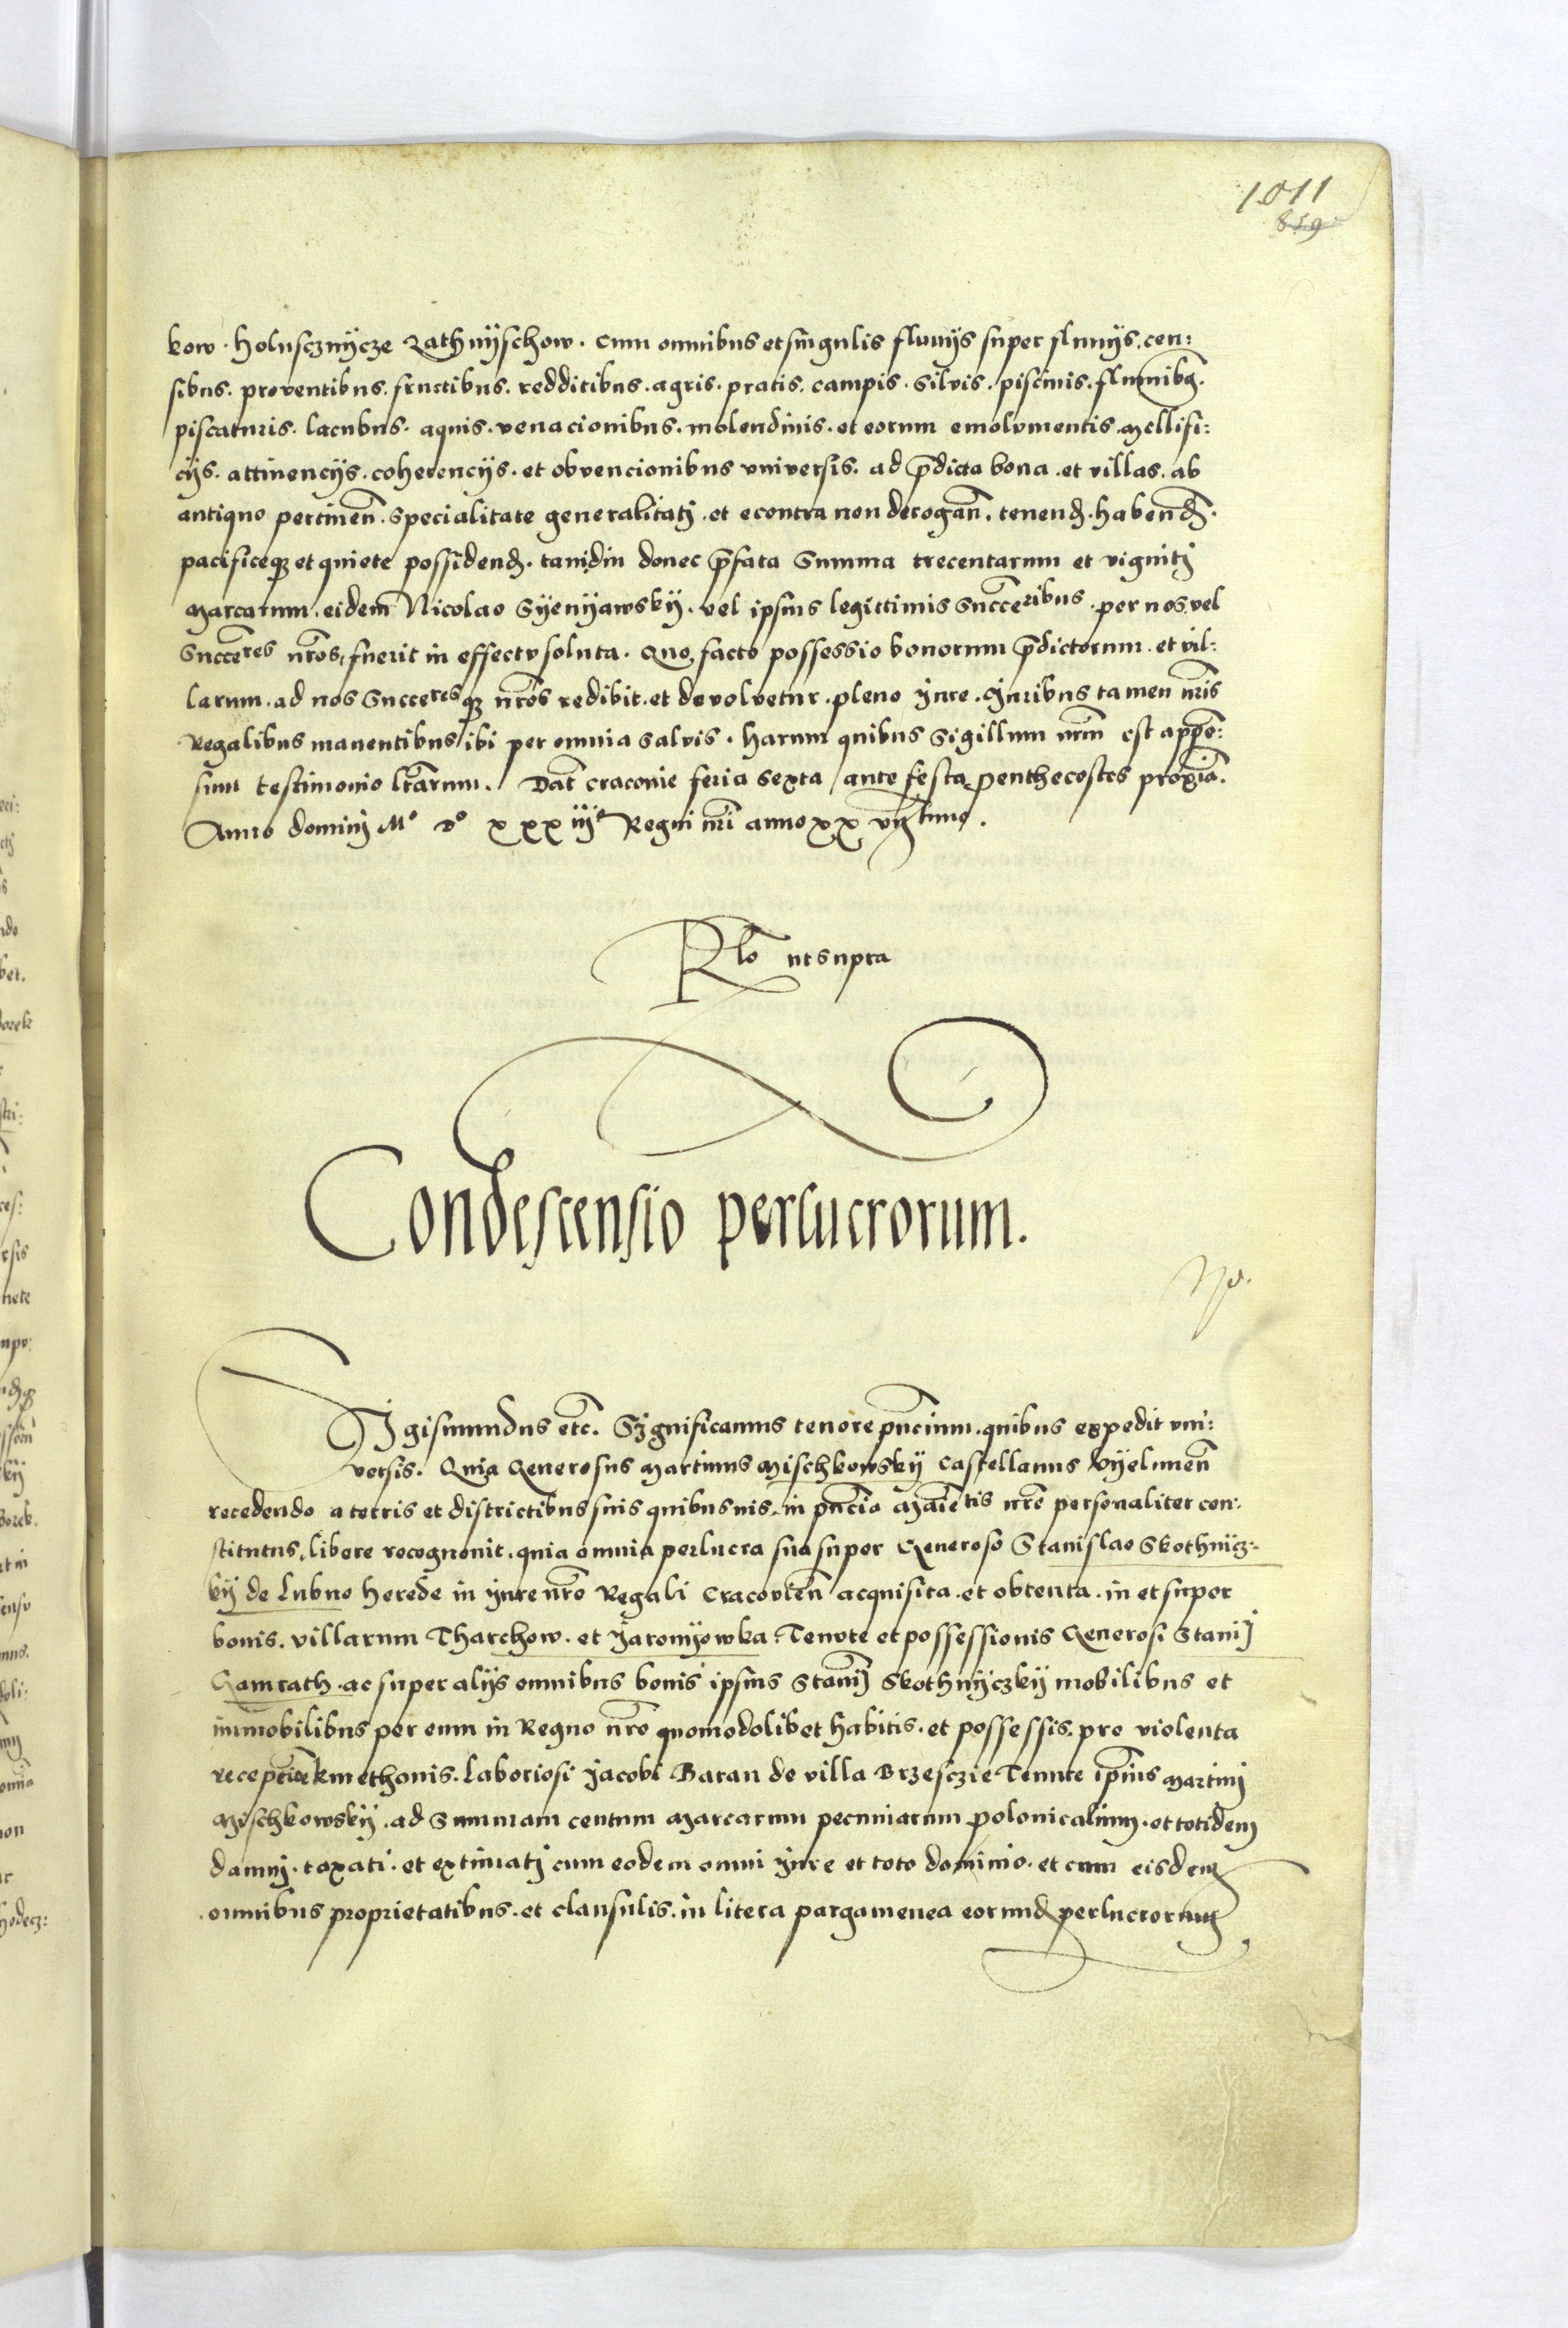 1011
859
kow . Holuscznijcze Zathnijschow . cum omnibus et singulis fluuijs super fluuijs . cen:
sibus . proventibus . fructibus . redditibus . agris . pratis . campis . silvis . piscinis . fluminibꝫ .
piscaturis . lacubus . aquis . venacionibus . molendinis . et eorum emolvmentis . Mellifi:
cijs . attinencijs . coherencijs . et obvencionibus vniversis . ad p̄dicta bona . et villas . ab
antiquo pertineñ . specialitate generalitatj . et econtra non derogañ . tenenđ . habenđ .
pacificeqꝫ et quiete possidenđ . tamdiu donec p̄fata Summa trecentarum et vigintj
Marcarum . eidem Nicolao Syenyawskij . vel ipsius legittimis Succēribus . per nos vel
Succēres nr̄os, fuerit in effectv soluta . Quo facto possessio bonorum p̄dictorum . et vil:
larum . ad nos Succeresqꝫ nr̄os redibit . et devolvetur . pleno jure . Juribus tamen nr̄is
Regalibus manentibus ibi per omnia salvis . Harum quibus Sigillum nr̄m est appen̄:
sum testimonio lr̄arum . Dat̄ Craconie feria sexta ante festa Penthecostes proxīa .
Anno dominj Mº Dº xxxiijº Regni nr̄i anno xx vijtimo .
Rlo ut supra
Condescensio perlucrorum .
Sigismundus etc̄ . Significamus tenore pn̄cium . quibus expedit vni:
versis . Quia Generosus Martinus Mischkowskij Castellanus Vyelunen̄
recedendo a terris et districtibus suis quibusuis . in pn̄cia Maiētis nr̄e personaliter con:
stitutus, libere recognouit . quia omnia perlucra sua super Generoso Stanislao Skothnicz:
kij de Lubno herede in jure nr̄o Regali Cracovien̄ acquisita . et obtenta . in et super
bonis . villarum Tharchow . et Jaromyowka . Tenute et possessionis Generosi Stanij
Gamrath . ac super alijs omnibus bonis ipsius Stanij Skothnijczkij mobilibus et
immobilibus per eum in Regno nr̄o quomodolibet habitis . et possessis . pro violenta
recepcīōe kmethonis . Laboriosi Jacobi Baran de villa Brzesczie Tenute ip̄ius Martinj
Mischkowskij . ad Summam centum Marcarum pecuniarum polonicalium . et totidem
damnj . taxati . et extimatj cum eodem omni jure et toto dominio . et cum eisdem
omnibus proprietatibus . et clausulis . in litera pargamenea eorunđ perlucrorum